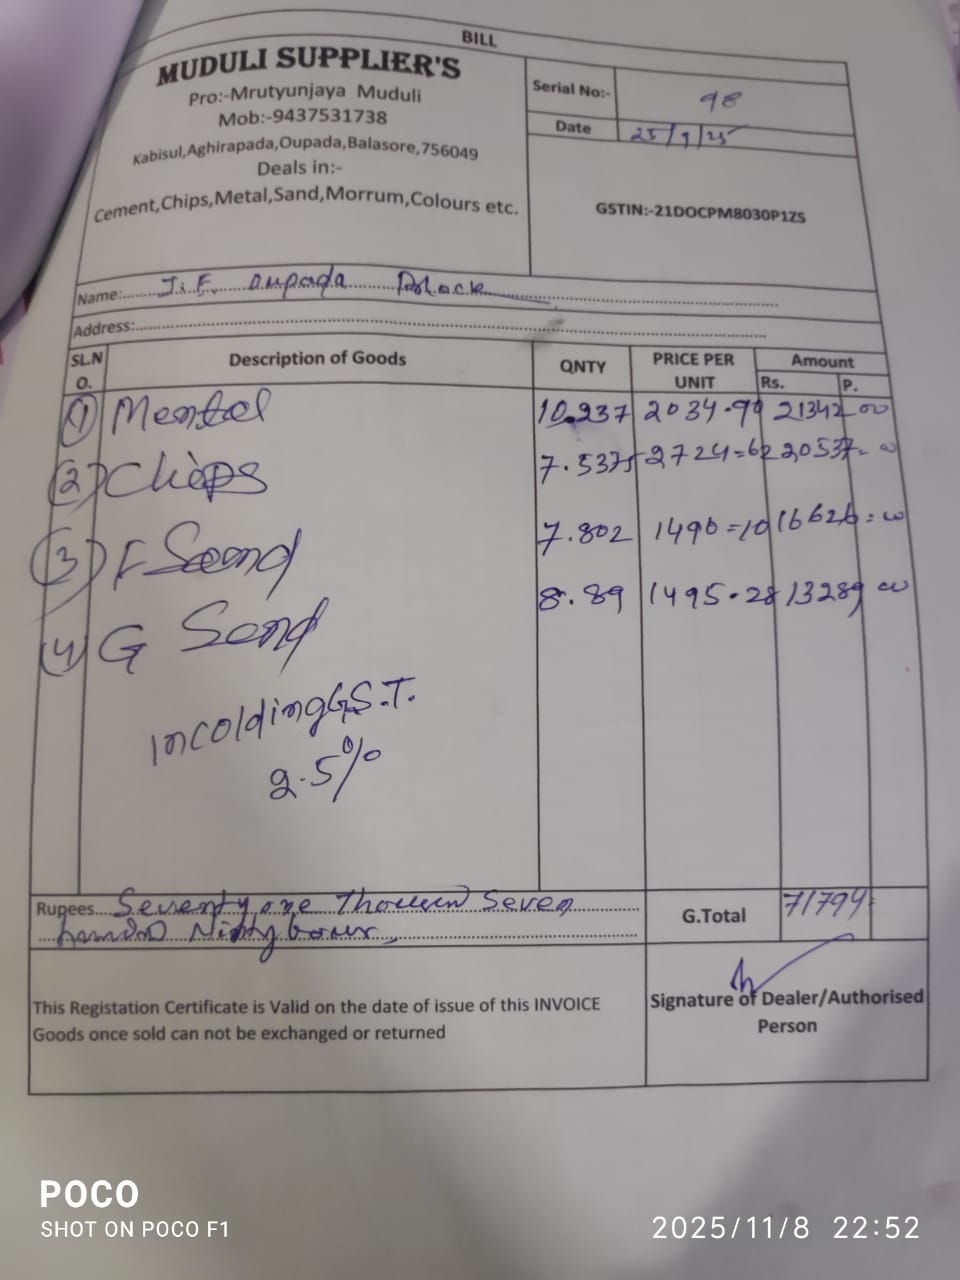 BILL
MUDULI SUPPLIER'S
Pro:-Mrutyunjaya Muduli
Mob:-9437531738
Kabisul,Aghirapada,Oupada,Balasore,756049
Deals in:-
Cement,Chips,Metal,Sand,Morrum,Colours etc.
Serial No:- 98
Date 25/9/25
GSTIN:-21DOCPM8030P1ZS
Name: J.E. Oupada Block
Address:
SL.NO. Description of Goods QNTY PRICE PER UNIT Amount Rs. P.
1 Mental 10.237 2034.90 21342 00
2 Chips 7.5375 2724=62 20537 00
3 F Sand 7.802 1490=10 16626 00
4 G Sand 8.89 1495.28 13289 00
Incolding G.S.T.
2.5%
Rupees Seventy one Seven
G.Total 71794
This Registation Certificate is Valid on the date of issue of this INVOICE
Goods once sold can not be exchanged or returned
Signature of Dealer/Authorised
Person
POCO
SHOT ON POCO F1
2025/11/8 22:52